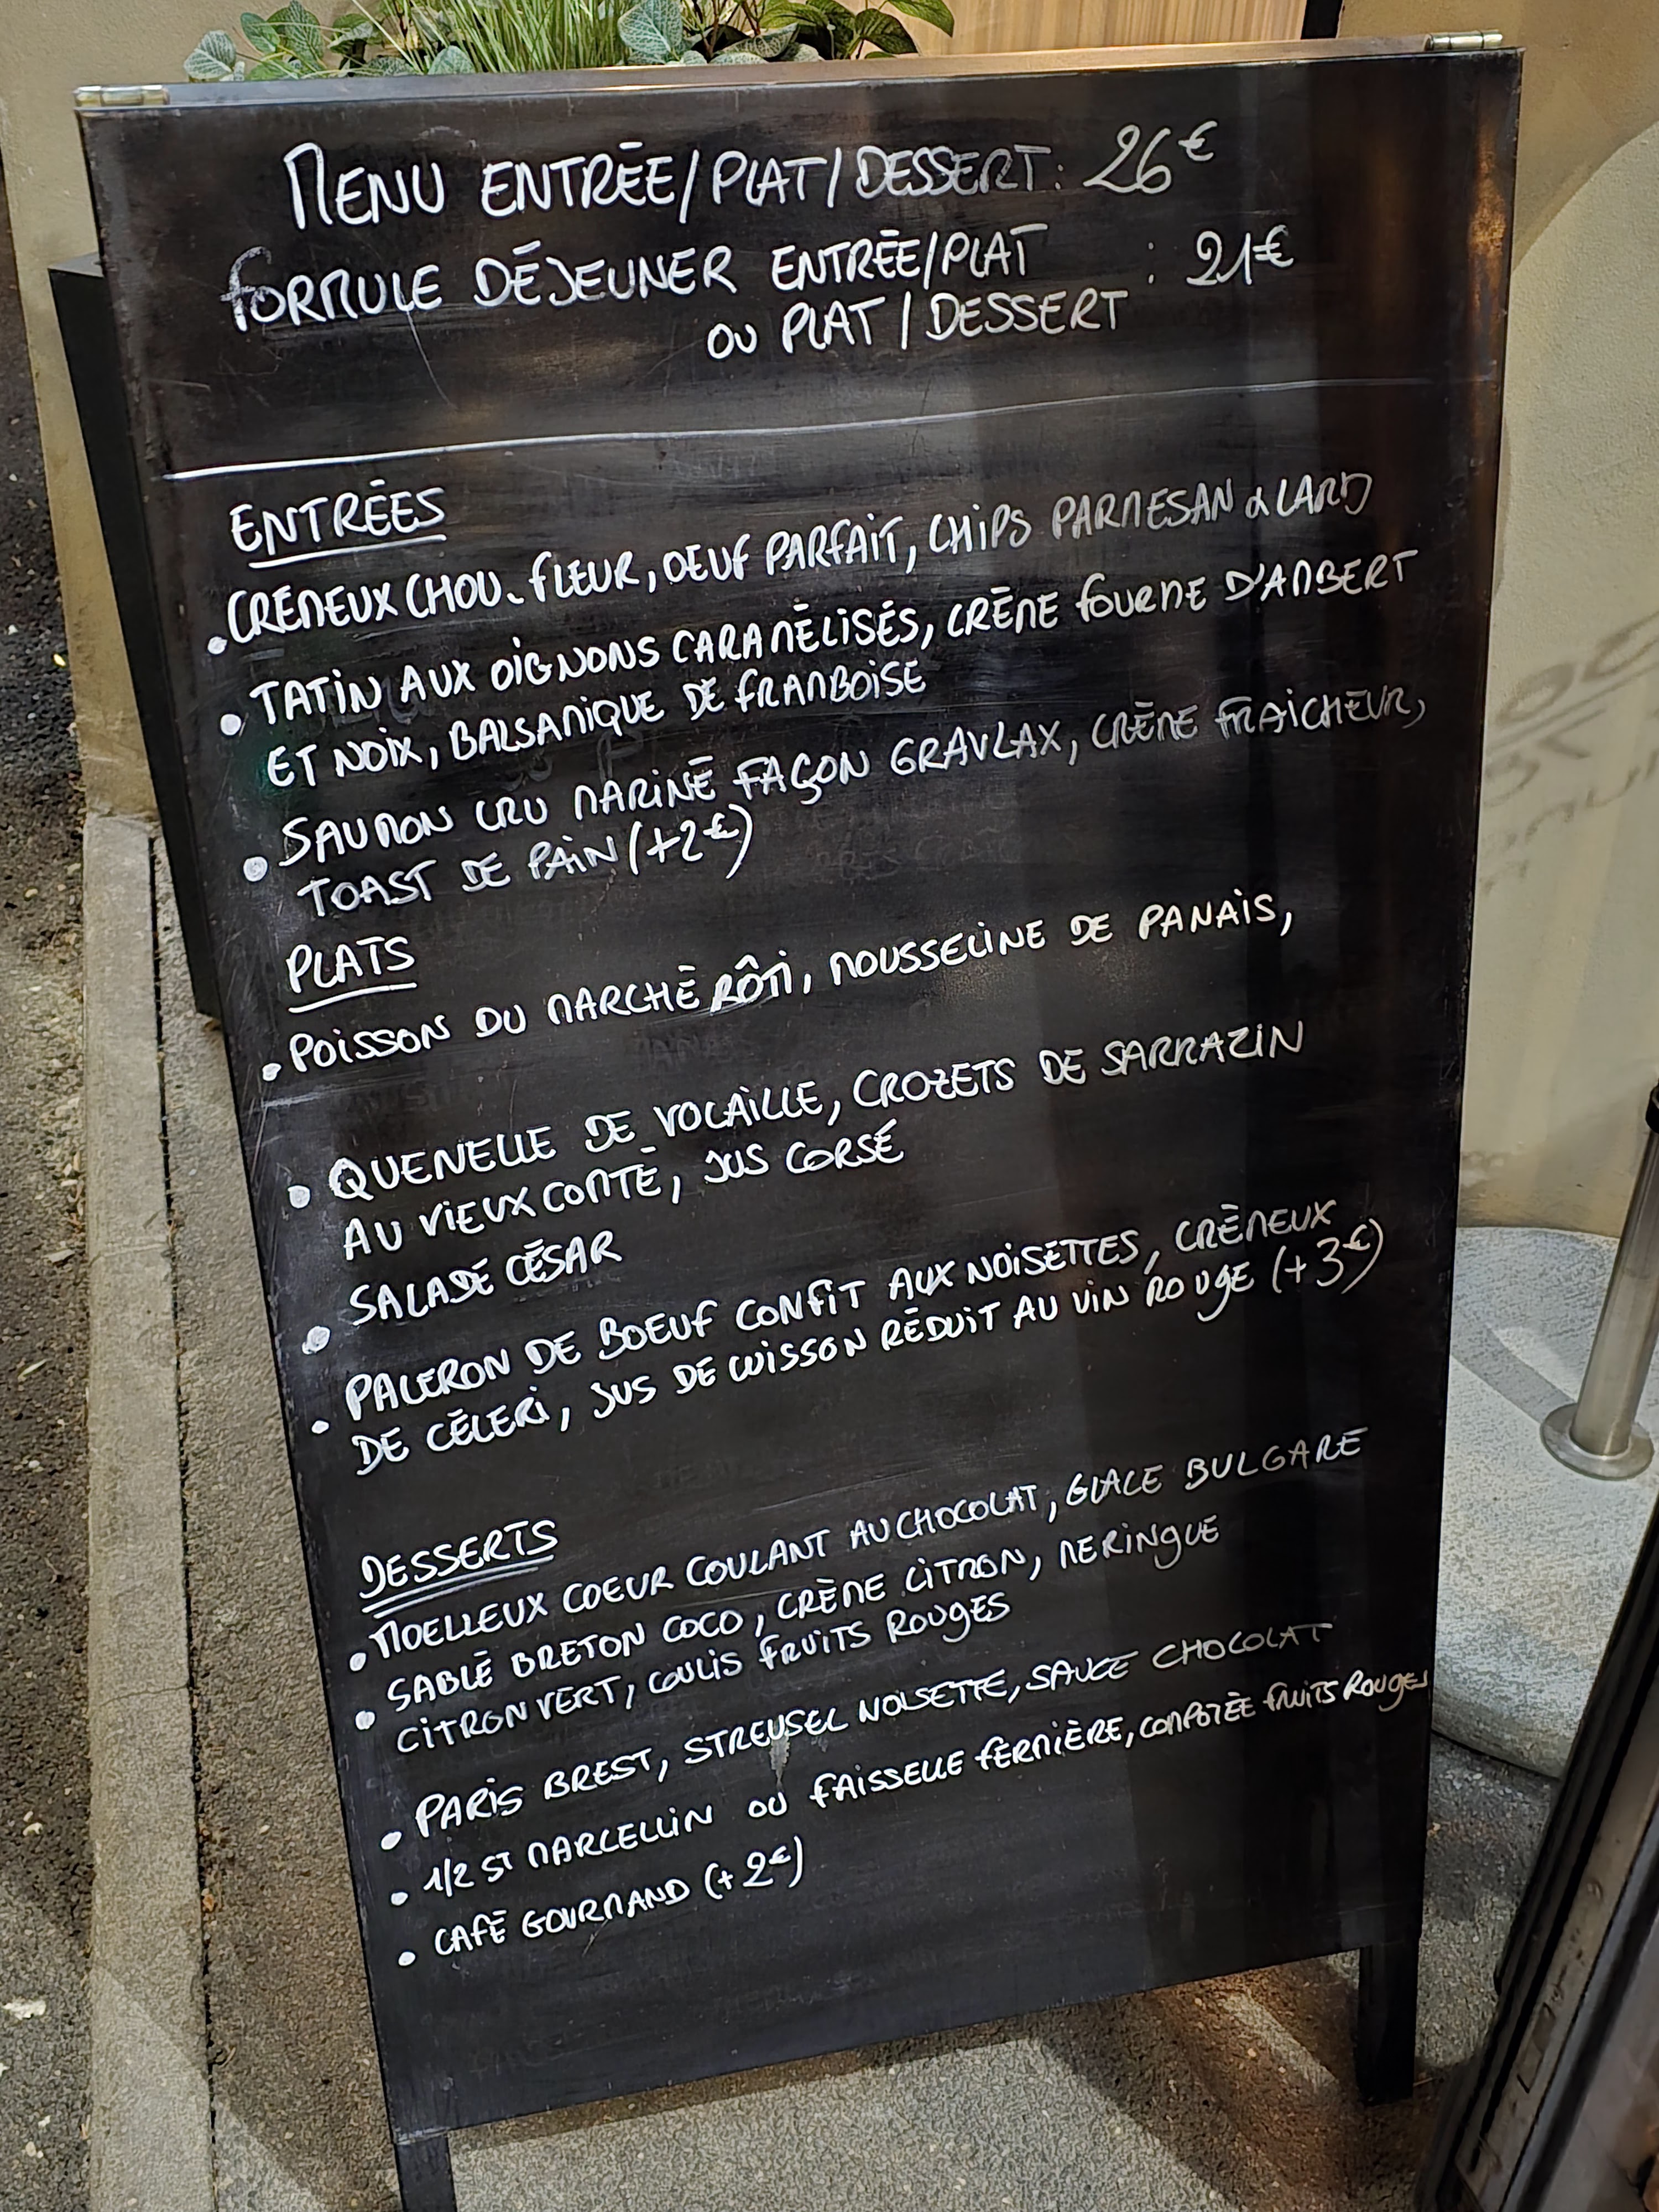 MENU ENTRÉE/PLAT/DESSERT: 26€
FORMULE DÉJEUNER ENTRÉE/PLAT : 21€
OU PLAT/DESSERT
ENTRÉES
• CRÉMEUX CHOU-FLEUR, OEUF PARFAIT, CHIPS PARMESAN & LARD
• TATIN AUX OIGNONS CARAMÉLISÉS, CRÈME FOURME D'AMBERT
ET NOIX, BALSAMIQUE DE FRAMBOISE
• SAUMON CRU MARINÉ FAÇON GRAVLAX, CRÈME FRAICHEUR,
TOAST DE PAIN (+2€)
PLATS
• POISSON DU MARCHÉ RÔTI, MOUSSELINE DE PANAIS,
• QUENELLE DE VOLAILLE, CROZETS DE SARRAZIN
AU VIEUX COMTÉ, JUS CORSÉ
• SALADE CÉSAR
• PALERON DE BOEUF CONFIT AUX NOISETTES, CRÈMEUX
DE CÉLERI, JUS DE CUISSON RÉDUIT AU VIN ROUGE (+3€)
DESSERTS
• MOELLEUX COEUR COULANT AU CHOCOLAT, GLACE BULGARE
• SABLÉ BRETON COCO, CRÈME CITRON, MERINGUE
CITRON VERT, COULIS FRUITS ROUGES
• PARIS BREST, STREUSEL NOISETTE, SAUCE CHOCOLAT
• 1/2 ST MARCELLIN OU FAISSELLE FERMIÈRE, COMPOTÉE FRUITS ROUGES
• CAFÉ GOURMAND (+2€)